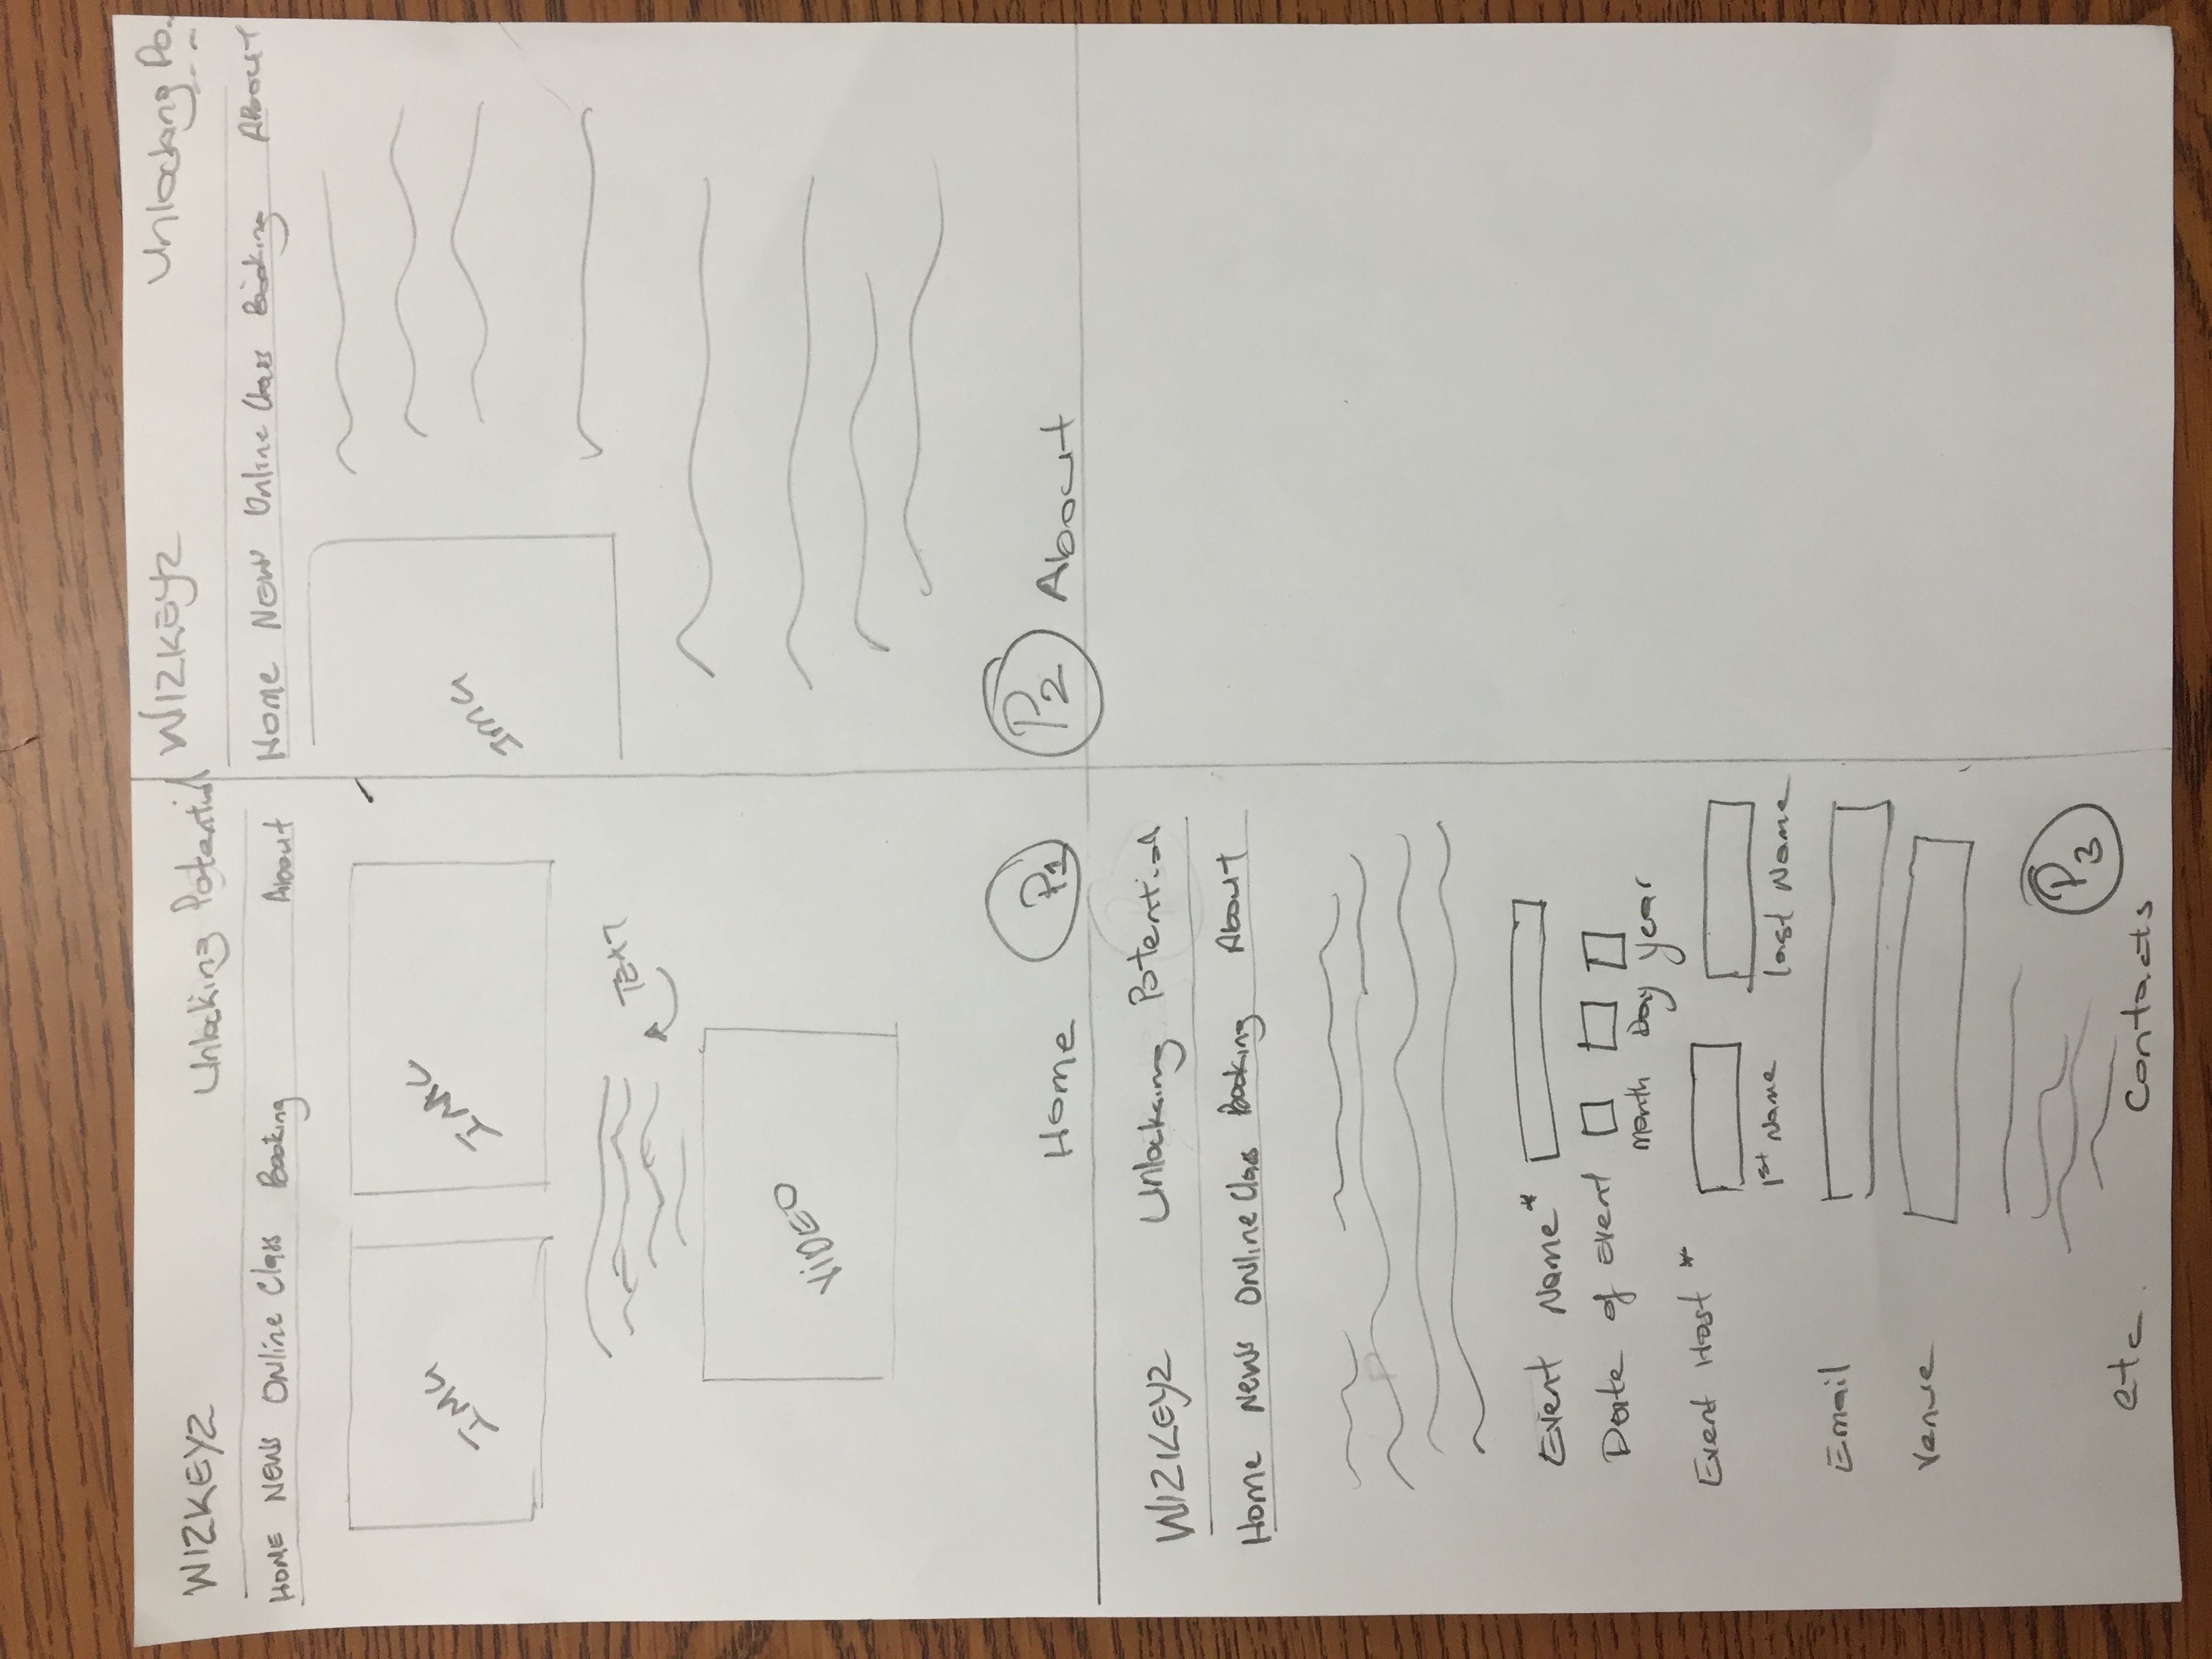 WIZKEYZ Unlocking Potential
HOME NEWS Online Class Booking About
IMG IMG
TEXT
VIDEO
Home P1
WIZKEYZ Unlocking Po...
Home NEWS Online Class Booking ABOUT
IMG
P2 About
WIZKEYZ Unlocking Potential
Home News Online Class Booking About
Event Name*
Date of Event
Month Day Year
Event Host *
1st Name Last Name
Email
Venue
P3
etc. Contacts